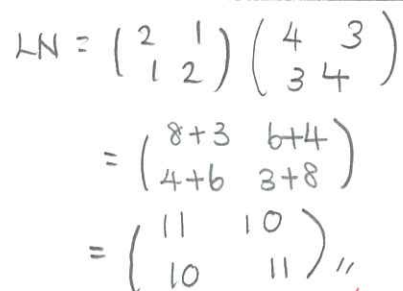 LN = ( 2 1 ) ( 4 3 )
( 1 2 ) ( 3 4 )
= ( 8+3 6+4 )
( 4+6 3+8 )
= ( 11 10 )
( 10 11 ) 〃